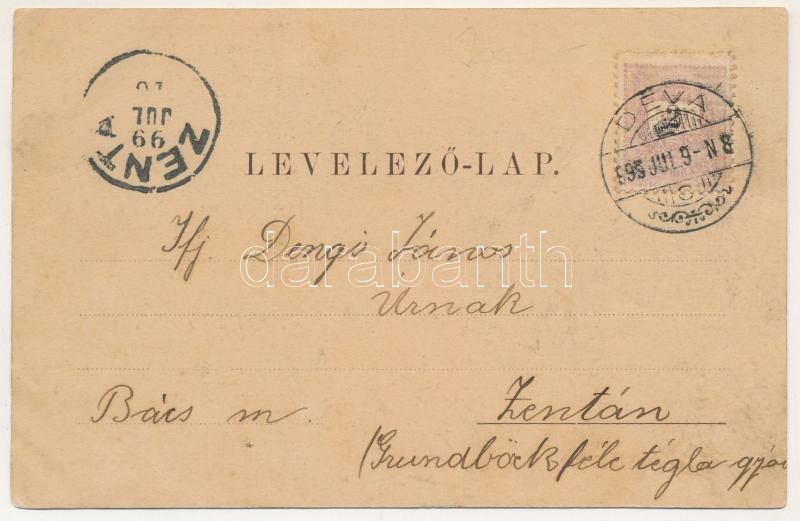 ZENTA
99
JUL
10
DÉVA
2
899 JUL 9-N 8
LEVELEZŐ-LAP.
Ifj. Dengi János
Urnak
Bács m. Zentán
(Grundböck féle tégla gyár
darabanth